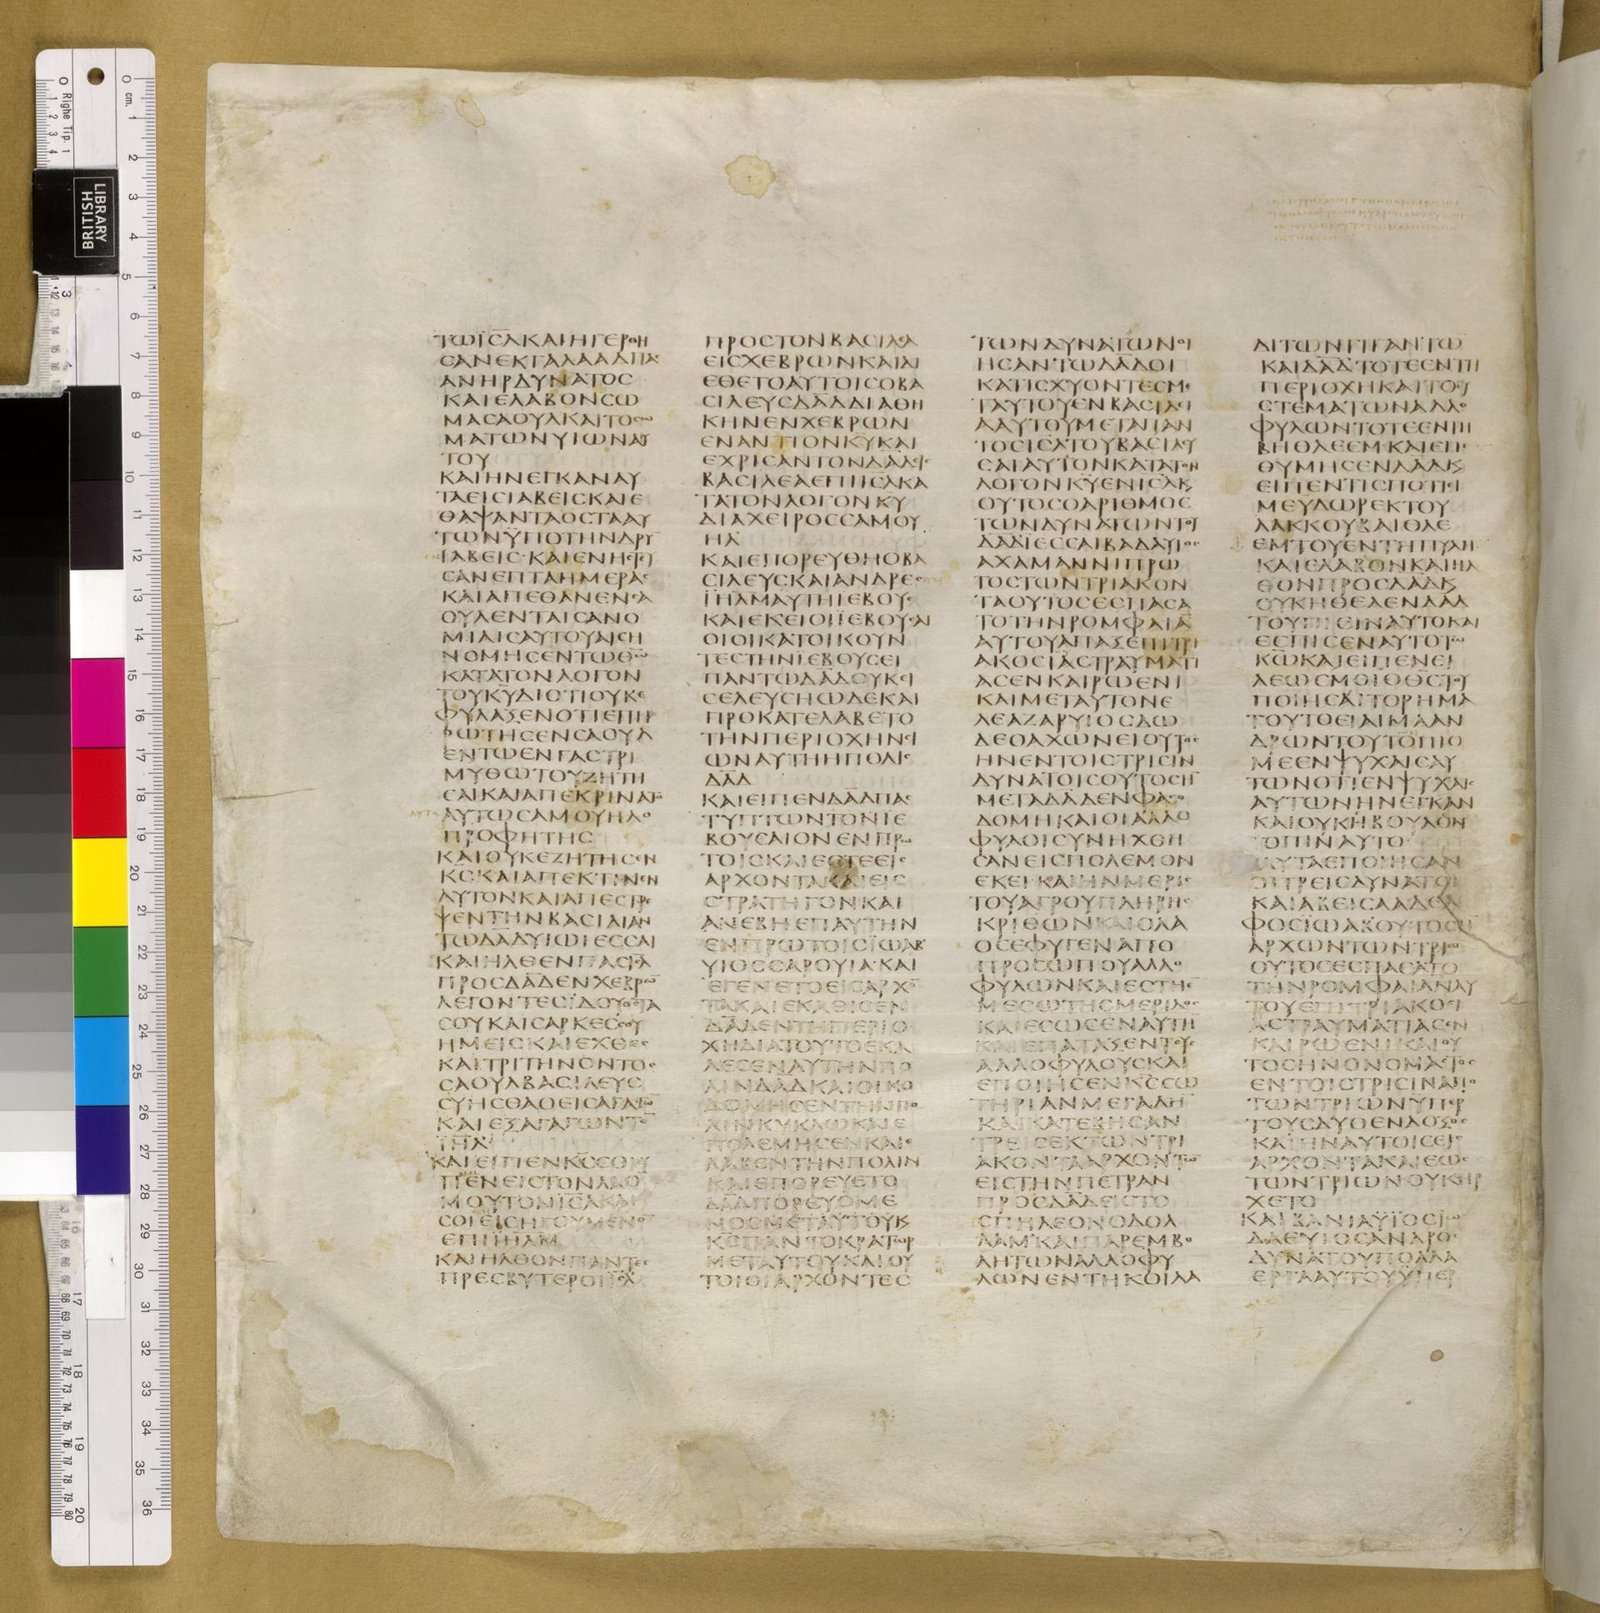 ΤΩΪΣΑΚΑΙΗΓΕΡΘΗ
ΣΑΝΕΚΓΑΛΑΑΔΠΑΣ
ΑΝΗΡΔΥΝΑΤΟΣ
ΚΑΙΕΛΑΒΟΝΣΩ
ΜΑΣΑΟΥΛΚΑΙΤΟΣΩ
ΜΑΤΩΝΥΙΩΝΑΥ
ΤΟΥ
ΚΑΙΗΝΕΓΚΑΝΑΥ
ΤΑΕΙΣΙΑΒΕΙΣΚΑΙΕ
ΘΑΨΑΝΤΑΟΣΤΑΑΥ
ΤΩΝΫΠΟΤΗΝΔΡΥ
ΙΑΒΕΙΣ·ΚΑΙΕΝΗΣΤΕΥ
ΣΑΝΕΠΤΑΗΜΕΡΑΣ
ΚΑΙΑΠΕΘΑΝΕΝΣΑ
ΟΥΛΕΝΤΑΙΣΑΝΟ
ΜΙΑΙΣΑΥΤΟΥΑΙΣΗ
ΝΟΜΗΣΕΝΤΩΘΩ
ΚΑΤΑΤΟΝΛΟΓΟΝ
ΤΟΥΚΥΔΙΟΤΙΟΥΚΕ
ΦΥΛΑΞΕΝΟΤΙΕΠΗ
ΡΩΤΗΣΕΝΣΑΟΥΛ
ΕΝΤΩΕΝΓΑΣΤΡΙ
ΜΥΘΩΤΟΥΖΗΤΗ
ΣΑΙΚΑΙΑΠΕΚΡΙΝΑΤΟ
ΑΥΤΩΣΑΜΟΥΗΛΟ
ΠΡΟΦΗΤΗΣ
ΚΑΙΟΥΚΕΖΗΤΗΣΕΝ
ΚΣΚΑΙΑΠΕΚΤΙΝΕΝ
ΑΥΤΟΝΚΑΙΑΠΕΣΤΡΕ
ΨΕΝΤΗΝΒΑΣΙΛΙΑΝ
ΤΩΔΑΔΥΙΩΙΕΣΣΑΙ
ΚΑΙΗΛΘΕΝΠΑΣΙΗΛ
ΠΡΟΣΔΑΔΕΝΧΕΒΡΩ
ΛΕΓΟΝΤΕΣΙΔΟΥΟΣΤΑ
ΣΟΥΚΑΙΣΑΡΚΕΣΣΟΥ
ΗΜΕΙΣΚΑΙΕΧΘΕΣ
ΚΑΙΤΡΙΤΗΝΟΝΤΟΣ
ΣΑΟΥΛΒΑΣΙΛΕΥΣ
ΣΥΗΣΘΑΟΕΙΣΑΓΑΓΩ
ΚΑΙΕΞΑΓΑΓΩΝΤΟ
ΙΗΛ
ΚΑΙΕΙΠΕΝΚΣΣΟΙΣΥ
ΠΕΝΕΙΣΤΟΝΛΑΟ
ΜΟΥΤΟΝΙΣΛΚΑΙ
ΣΟΙΕΙΣΗΓΟΥΜΕΝΟΝ
ΕΠΙΙΗΛΜ
ΚΑΙΗΛΘΟΝΠΑΝΤΕΣ
ΠΡΕΣΒΥΤΕΡΟΙΙΗΛ
ΠΡΟΣΤΟΝΒΑΣΙΛΕΑ
ΕΙΣΧΕΒΡΩΝΚΑΙΔΙ
ΕΘΕΤΟΑΥΤΟΙΣΟΒΑ
ΣΙΛΕΥΣΔΑΔΔΙΑΘΗ
ΚΗΝΕΝΧΕΒΡΩΝ
ΕΝΑΝΤΙΟΝΚΥΚΑΙ
ΕΧΡΙΣΑΝΤΟΝΔΑΔΕΙΣ
ΒΑΣΙΛΕΑΕΠΙΙΣΛΚΑ
ΤΑΤΟΝΛΟΓΟΝΚΥ
ΔΙΑΧΕΙΡΟΣΣΑΜΟΥ
ΗΛ
ΚΑΙΕΠΟΡΕΥΘΗΟΒΑ
ΣΙΛΕΥΣΚΑΙΑΝΔΡΕΣ
ΙΗΛΜΑΥΤΗΙΕΒΟΥΣ
ΚΑΙΕΚΕΙΟΙΙΕΒΟΥΣΑΙ
ΟΙΟΙΚΑΤΟΙΚΟΥΝ
ΤΕΣΤΗΝΙΕΒΟΥΣΕΙ
ΠΑΝΤΩΔΑΔΟΥΚΕΙ
ΣΕΛΕΥΣΗΩΔΕΚΑΙ
ΠΡΟΚΑΤΕΛΑΒΕΤΟ
ΤΗΝΠΕΡΙΟΧΗΝΣΙ
ΩΝΑΥΤΗΗΠΟΛΙΣ
ΔΑΔ
ΚΑΙΕΙΠΕΝΔΑΔΠΑΣ
ΤΥΠΤΩΝΤΟΝΙΕ
ΒΟΥΣΑΙΟΝΕΝΠΡΩ
ΤΟΙΣΚΑΙΕΣΤΕΕΙΣ
ΑΡΧΟΝΤΑΚΑΙΕΙΣ
ΣΤΡΑΤΗΓΟΝΚΑΙ
ΑΝΕΒΗΕΠΑΥΤΗΝ
ΕΝΠΡΩΤΟΙΣΙΩΑΒ
ΥΙΟΣΣΑΡΟΥΙΑ·ΚΑΙ
ΕΓΕΝΕΤΟΕΙΣΑΡΧΟ
ΤΑΚΑΙΕΚΑΘΙΣΕΝ
ΔΑΔΕΝΤΗΠΕΡΙΟ
ΧΗΔΙΑΤΟΥΤΟΕΚΑ
ΛΕΣΕΝΑΥΤΗΝΠΟ
ΛΙΝΔΑΔΚΑΙΟΙΚΟ
ΔΟΜΗΣΕΝΤΗΝΠΟ
ΛΙΝΚΥΚΛΩΚΑΙΕ
ΠΟΛΕΜΗΣΕΝΚΑΙΕ
ΛΑΒΕΝΤΗΝΠΟΛΙΝ
ΚΑΙΕΠΟΡΕΥΕΤΟ
ΔΑΔΠΟΡΕΥΟΜΕ
ΝΟΣΜΕΤΑΥΤΟΥΚΣ
ΚΣΠΑΝΤΟΚΡΑΤΩΡ
ΜΕΤΑΥΤΟΥΚΑΙΟΥ
ΤΟΙΟΙΑΡΧΟΝΤΕΣ
ΤΩΝΔΥΝΑΤΩΝΟΙ
ΗΣΑΝΤΩΔΑΔΟΙ
ΚΑΤΙΣΧΥΟΝΤΕΣΜΕ
ΤΑΥΤΟΥΕΝΒΑΣΙΛΕΙ
ΑΑΥΤΟΥΜΕΤΑΠΑΝ
ΤΟΣΙΣΛΤΟΥΒΑΣΙΛΕΥ
ΣΑΙΑΥΤΟΝΚΑΤΑΤΟΝ
ΛΟΓΟΝΚΥΕΝΙΣΛΚΣ
ΟΥΤΟΣΟΑΡΙΘΜΟΣ
ΤΩΝΔΥΝΑΤΩΝΤΟΥ
ΔΑΔΙΕΣΣΑΙΒΑΔΑΥΙΟΣ
ΑΧΑΜΑΝΝΙΠΡΩ
ΤΟΣΤΩΝΤΡΙΑΚΟΝ
ΤΑΟΥΤΟΣΕΣΠΑΣΑ
ΤΟΤΗΝΡΟΜΦΑΙΑ
ΑΥΤΟΥΑΠΑΞΕΠΙΤΡΙ
ΑΚΟΣΙΑΣΤΡΑΥΜΑΤΙ
ΑΣΕΝΚΑΙΡΩΕΝΙ
ΚΑΙΜΕΤΑΥΤΟΝΕ
ΛΕΑΖΑΡΥΙΟΣΔΩ
ΔΕΟΑΧΩΝΕΙΟΥΤΟΣ
ΗΝΕΝΤΟΙΣΤΡΙΣΙΝ
ΔΥΝΑΤΟΙΣΟΥΤΟΣΗ
ΜΕΤΑΔΑΔΕΝΦΑΣΟ
ΔΟΜΗΚΑΙΟΙΑΛΛΟ
ΦΥΛΟΙΣΥΝΗΧΘΗ
ΣΑΝΕΙΣΠΟΛΕΜΟΝ
ΕΚΕΙ·ΚΑΙΗΝΜΕΡΙΣ
ΤΟΥΑΓΡΟΥΠΛΗΡΗΣ
ΚΡΙΘΩΝΚΑΙΟΛΑ
ΟΣΕΦΥΓΕΝΑΠΟ
ΠΡΟΣΩΠΟΥΑΛΛΟ
ΦΥΛΩΝΚΑΙΕΣΤΗ
ΜΕΣΩΤΗΣΜΕΡΙΔΟΣ
ΚΑΙΕΣΩΣΕΝΑΥΤΗ
ΚΑΙΕΠΑΤΑΞΕΝΤΟΥΣ
ΑΛΛΟΦΥΛΟΥΣΚΑΙ
ΕΠΟΙΗΣΕΝΚΣΣΩ
ΤΗΡΙΑΝΜΕΓΑΛΗ
ΚΑΙΚΑΤΕΒΗΣΑΝ
ΤΡΕΙΣΕΚΤΩΝΤΡΙ
ΑΚΟΝΤΑΑΡΧΟΝΤΩ
ΕΙΣΤΗΝΠΕΤΡΑΝ
ΠΡΟΣΔΑΔΕΙΣΤΟ
ΣΠΗΛΕΟΝΟΔΟΛ
ΛΑΜ·ΚΑΙΠΑΡΕΜΒΟ
ΛΗΤΩΝΑΛΛΟΦΥ
ΛΩΝΕΝΤΗΚΟΙΛΑ
ΔΙΤΩΝΓΙΓΑΝΤΩ
ΚΑΙΔΑΔΤΟΤΕΕΝΤΗ
ΠΕΡΙΟΧΗΚΑΙΤΟΣΥ
ΣΤΕΜΑΤΩΝΑΛΛΟ
ΦΥΛΩΝΤΟΤΕΕΝΤΗ
ΒΗΘΛΕΕΜ·ΚΑΙΕΠΕ
ΘΥΜΗΣΕΝΔΑΔΚΣ
ΕΙΠΕΝΤΙΣΠΟΤΙΕΙ
ΜΕΥΔΩΡΕΚΤΟΥ
ΛΑΚΚΟΥΒΑΙΘΛΕ
ΕΜΤΟΥΕΝΤΗΠΥΛΗ
ΚΑΙΕΛΑΒΟΝΚΑΙΗΛ
ΘΟΝΠΡΟΣΔΑΔΚΣ
ΟΥΚΗΘΕΛΕΝΔΑΔ
ΤΟΥΠΙΕΙΝΑΥΤΟΚΑΙ
ΕΣΠΙΣΕΝΑΥΤΟΤΩ
ΚΩΚΑΙΕΙΠΕΝΕΙ
ΛΕΩΣΜΟΙΟΘΣΤΟΥ
ΠΟΙΗΣΑΙΤΟΡΗΜΑ
ΤΟΥΤΟΕΙΑΙΜΑΑΝ
ΔΡΩΝΤΟΥΤΩΠΙΟ
ΜΕΕΝΨΥΧΑΙΣΑΥ
ΤΩΝΟΤΙΕΝΨΥΧΑΙΣ
ΑΥΤΩΝΗΝΕΓΚΑΝ
ΚΑΙΟΥΚΗΒΟΥΛΟΝ
ΤΟΠΙΝΑΥΤΟ·
ΤΑΥΤΑΕΠΟΙΗΣΑΝ
ΟΙΤΡΕΙΣΔΥΝΑΤΟΙ
ΚΑΙΑΒΕΙΣΑΑΔΕΛ
ΦΟΣΙΩΑΒΟΥΤΟΣΗ
ΑΡΧΩΝΤΩΝΤΡΙΩ
ΟΥΤΟΣΕΣΠΑΣΑΤΟ
ΤΗΝΡΟΜΦΑΙΑΝΑΥ
ΤΟΥΕΠΙΤΡΙΑΚΟΣΙ
ΑΣΤΡΑΥΜΑΤΙΑΣΕΝ
ΚΑΙΡΩΕΝΙΚΑΙΟΥ
ΤΟΣΗΝΟΝΟΜΑΣΤΟΣ
ΕΝΤΟΙΣΤΡΙΣΙΝΑΠΟ
ΤΩΝΤΡΙΩΝΥΠΕΡ
ΤΟΥΣΔΥΟΕΝΔΟΞΟΣ
ΚΑΙΗΝΑΥΤΟΙΣΕΙΣ
ΑΡΧΟΝΤΑΚΑΙΕΩΣ
ΤΩΝΤΡΙΩΝΟΥΚΗΡ
ΧΕΤΟ
ΚΑΙΒΑΝΙΑΥΪΟΣΙΩ
ΔΑΕΥΙΟΣΑΝΔΡΟΣ
ΔΥΝΑΤΟΥΠΟΛΛΑ
ΕΡΓΑΑΥΤΟΥΥΠΕΡ